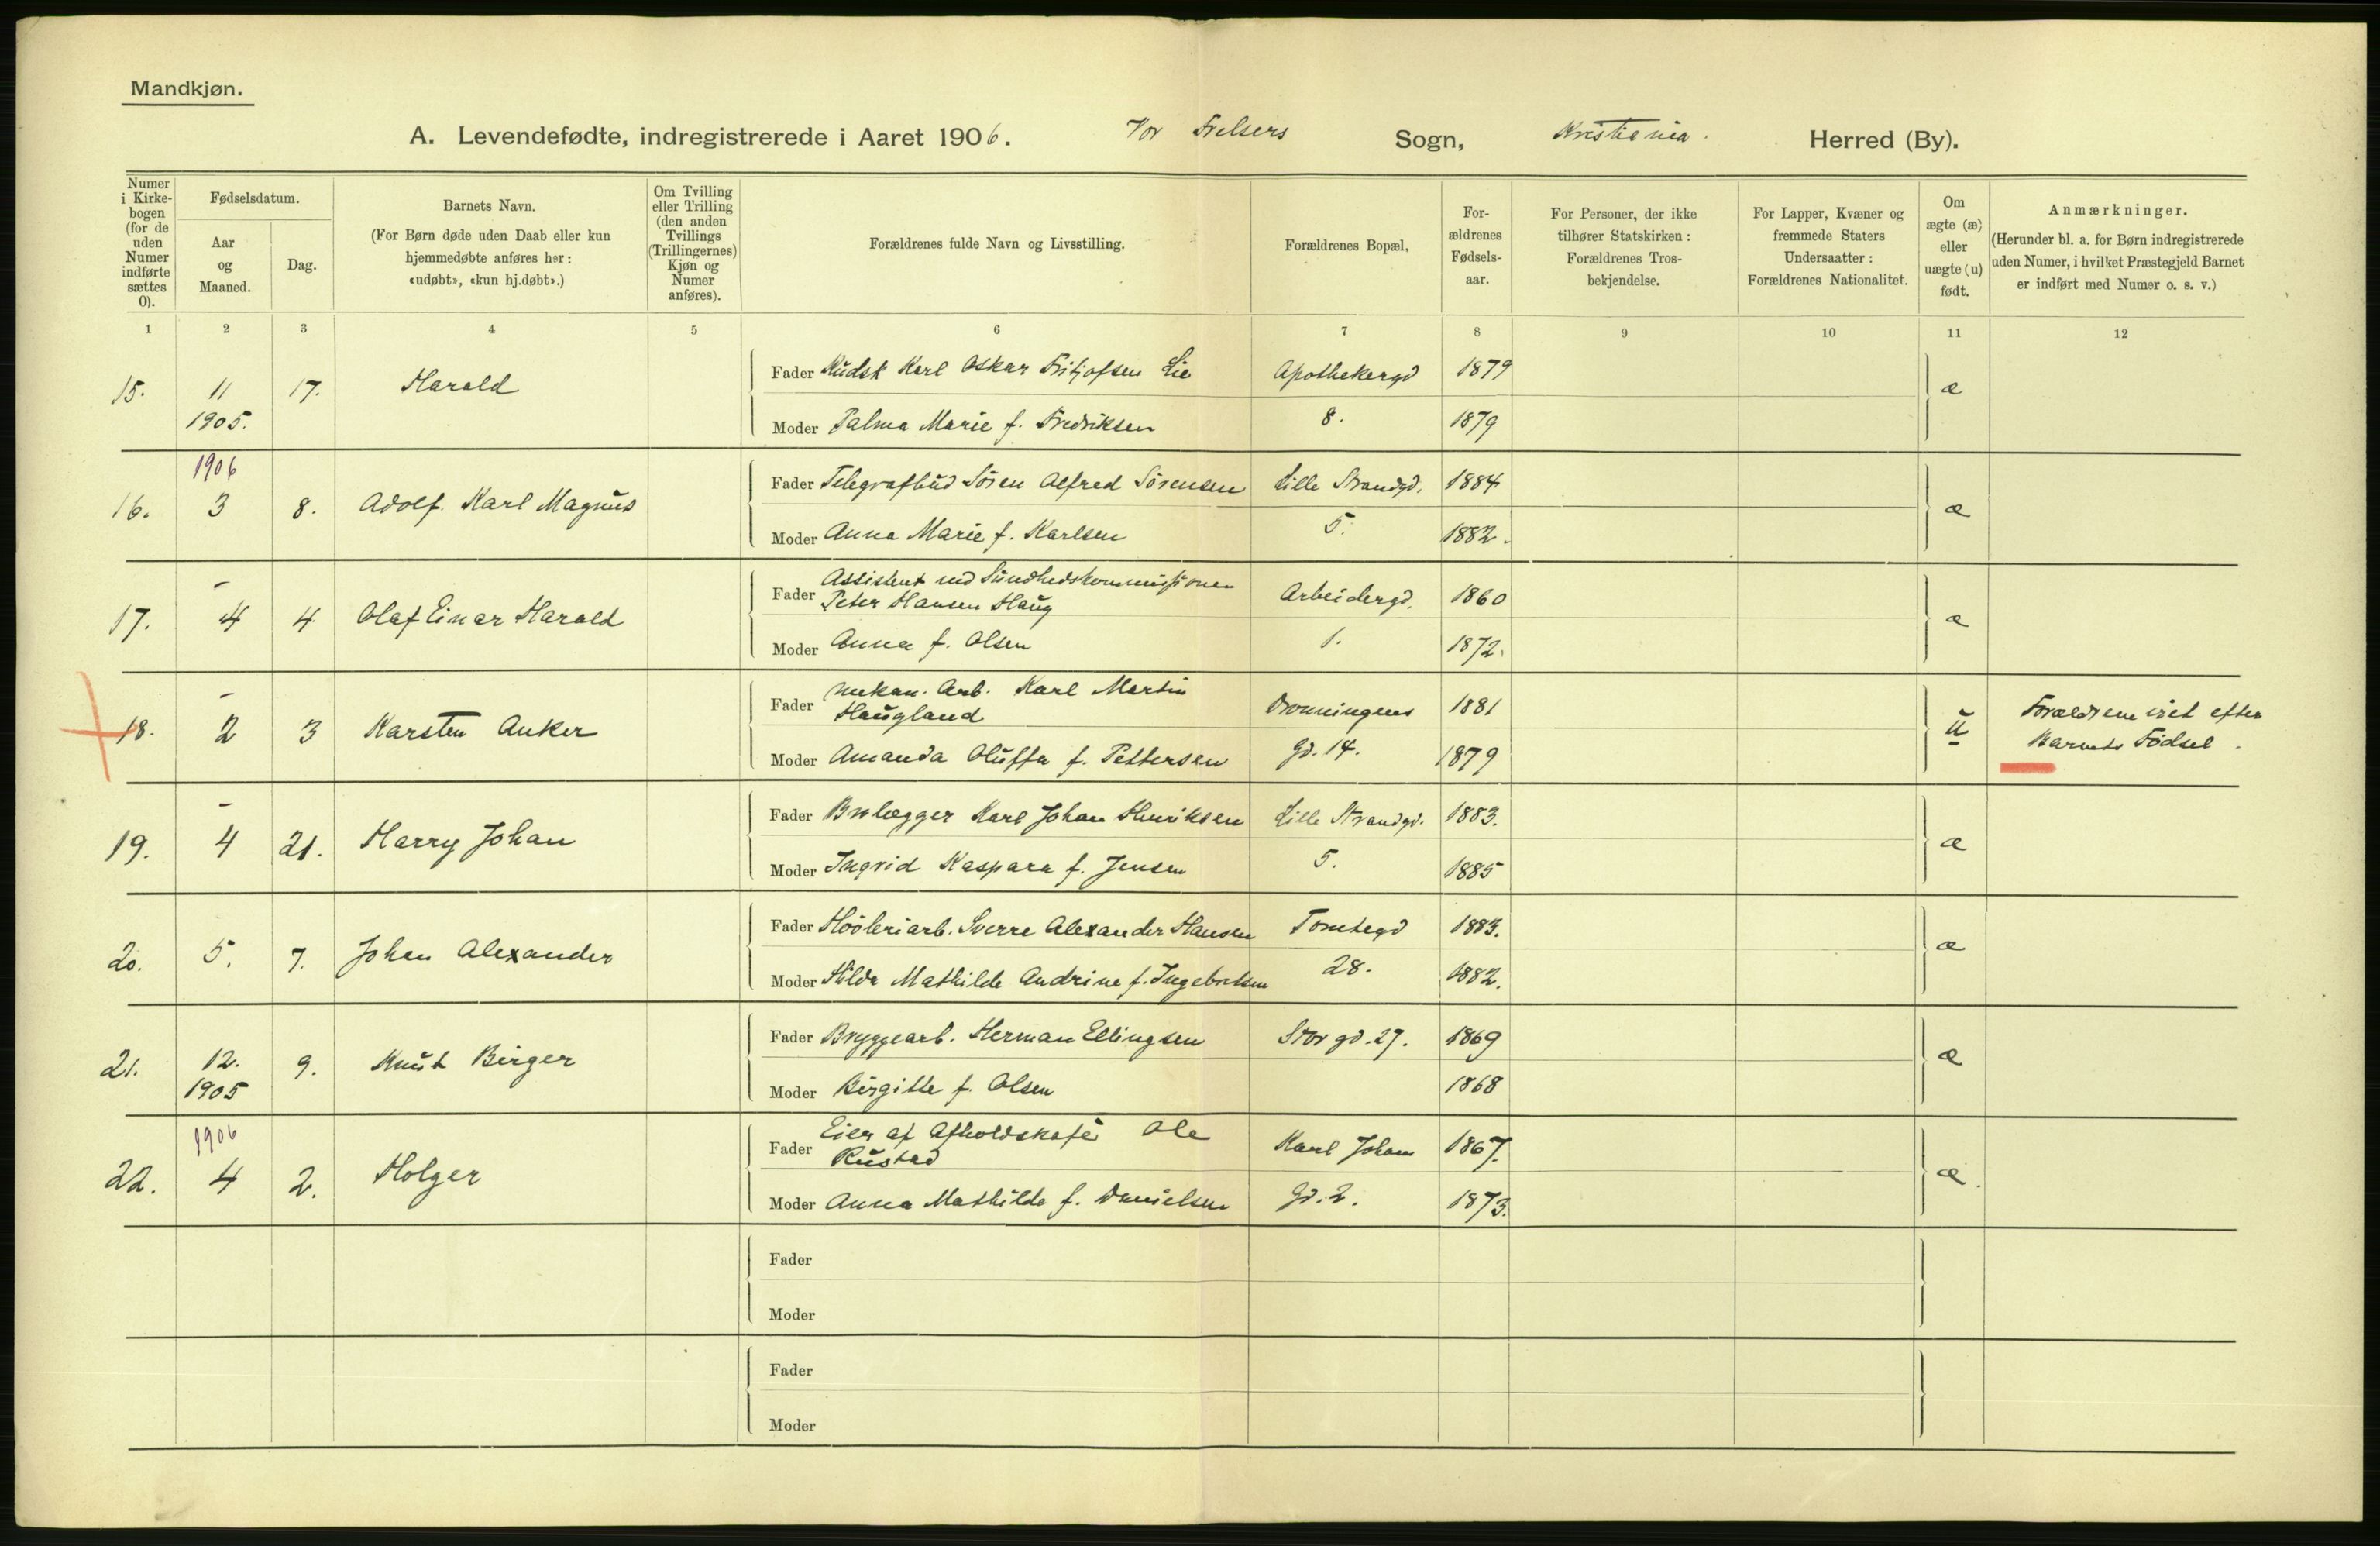 Mandkjøn.
A. Levendefødte, indregistrerede i Aaret 1906. Vor Frelsers Sogn, Kristiania. Herred (By).
Numer i Kirkebogen (for de uden Numer indførte sættes 0).
Fødselsdatum.
Aar og Maaned.
Dag.
Barnets Navn.
(For Børn døde uden Daab eller kun hjemmedøbte anføres her: «udøbt», «kun hj.døbt».)
Om Tvilling eller Trilling (den anden Tvillings (Trillingernes) Kjøn og Numer anføres).
Forældrenes fulde Navn og Livsstilling.
Forældrenes Bopæl,
Forældrenes Fødselsaar.
For Personer, der ikke tilhører Statskirken: Forældrenes Trosbekjendelse.
For Lapper, Kvæner og fremmede Staters Undersaatter: Forældrenes Nationalitet.
Om ægte (æ) eller uægte (u) født.
Anmærkninger.
(Herunder bl. a. for Børn indregistrerede uden Numer, i hvilket Præstegjeld Barnet er indført med Numer o. s. v.)
1 2 3 4 5 6 7 8 9 10 11 12
15. 11 1905. 17. Harald
Fader Kudsk Karl Oskar Fritjofsen Lie Apothekergd 1879 æ
Moder Palma Marie f. Fredriksen 8. 1879
1906
16. 3 8. Adolf Karl Magnus
Fader Telegrafbud Sören Alfred Sörensen Lille Strandgd. 1884 æ
Moder Anna Marie f. Karlsen 5. 1882.
17. - 4 4 Olaf Einar Harald
Fader Assistent ved Sundhedskommissionen
Peter Hansen Haug Arbeidergd. 1860 æ
Moder Anna f. Olsen 1. 1872.
18. - 2 3 Karsten Anker
Fader mekan. Arb. Karl Martin
Haugland Dronningens 1881 u Forældrene viet efter
Moder Amanda Oluffa f. Pettersen gd. 14. 1879 Barnets Födsel.
19. - 4 21. Harry Johan
Fader Brolægger Karl Johan Henriksen Lille Strandgd. 1883. æ
Moder Ingrid Kaspara f. Jensen 5. 1885
20. 5. 7. Johan Alexander
Fader Hövleriarb. Sverre Alexander Hansen Tomtegd 1883. æ
Moder Hilda Mathilde Andrine f. Ingebretsen 28. 1882.
21. 12. 1905 9. Knut Birger
Fader Bryggearb. Herman Ellingsen Storgd. 27. 1869 æ
Moder Birgitte f. Olsen 1868
1906
22. 4 2. Holger
Fader Eier af Afholdskafé Ole
Rustad Karl Johans 1867. æ.
Moder Anna Mathilde f. Danielsen gd. 2. 1873.
Fader
Moder
Fader
Moder